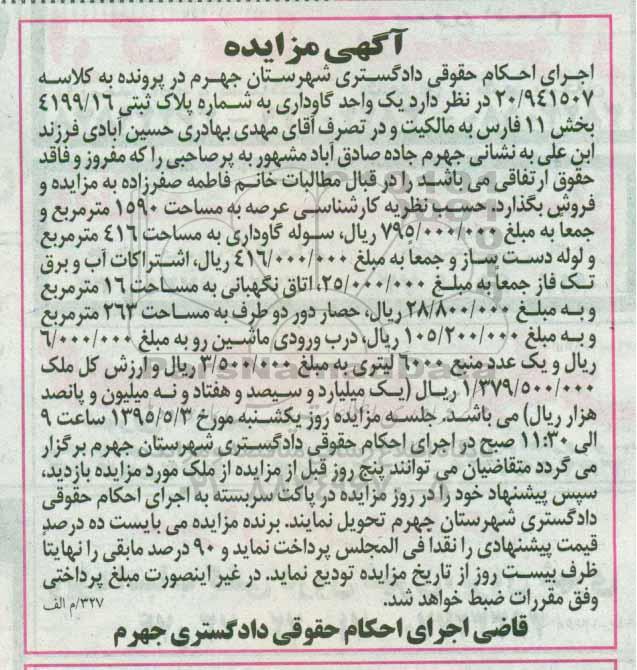 آگهی مزایده
اجرای احکام حقوقی دادگستری شهرستان جهرم در پرونده به کلاسه
۲۰/۹۴۱۵۰۷ در نظر دارد یک واحد گاوداری به شماره پلاک ثبتی ۴۱۹۹/۱۶
بخش ۱۱ فارس به مالکیت و در تصرف آقای مهدی بهادری حسین آبادی فرزند
ابن علی به نشانی جهرم جاده صادق آباد مشهور به پرصاحبی را که مفروز و فاقد
حقوق ارتفاقی می باشد را در قبال مطالبات خانم فاطمه صفرزاده به مزایده و
فروش بگذارد. حسب نظریه کارشناسی عرصه به مساحت ۱۵۹۰ مترمربع و
جمعاً به مبلغ ۷۹۵/۰۰۰/۰۰۰ ریال، سوله گاوداری به مساحت ۴۱۶ مترمربع
و لوله دست ساز و جمعاً به مبلغ ۴۱۶/۰۰۰/۰۰۰ ریال، اشتراکات آب و برق
تک فاز جمعاً به مبلغ ۲۵/۰۰۰/۰۰۰، اتاق نگهبانی به مساحت ۱۶ مترمربع
و به مبلغ ۲۸/۸۰۰/۰۰۰ ریال، حصار دور دو طرف به مساحت ۲۶۳ مترمربع
و به مبلغ ۱۰۵/۲۰۰/۰۰۰ ریال، درب ورودی ماشین رو به مبلغ ۶/۰۰۰/۰۰۰
ریال و یک عدد منبع ۶۰۰۰ لیتری به مبلغ ۳/۵۰۰/۰۰۰ ریال و ارزش کل ملک
۱/۳۷۹/۵۰۰/۰۰۰ ریال (یک میلیارد و سیصد و هفتاد و نه میلیون و پانصد
هزار ریال) می باشد. جلسه مزایده روز یکشنبه مورخ ۱۳۹۵/۵/۳ ساعت ۹
الی ۱۱:۳۰ صبح در اجرای احکام حقوقی دادگستری شهرستان جهرم برگزار
می گردد متقاضیان می توانند پنج روز قبل از مزایده از ملک مورد مزایده بازدید،
سپس پیشنهاد خود را در روز مزایده در پاکت سربسته به اجرای احکام حقوقی
دادگستری شهرستان جهرم تحویل نمایند. برنده مزایده می بایست ده درصد
قیمت پیشنهادی را نقداً فی المجلس پرداخت نماید و ۹۰ درصد مابقی را نهایتاً
ظرف بیست روز از تاریخ مزایده تودیع نماید. در غیر اینصورت مبلغ پرداختی
وفق مقررات ضبط خواهد شد.
۳۲۷/م الف
قاضی اجرای احکام حقوقی دادگستری جهرم